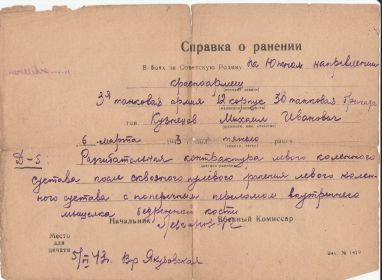 Справка о ранении
В боях за Советскую Родину на Южном направлении
красноармеец
3я танковая армия 12 корпус 30 танковая бригада
тов. Кузнецов Михаил Иванович
6 марта 3 тяжело
D-S: Разгибательная контрактура левого коленного
сустава после сквозного пулевого ранения левого колен-
ного сустава с поперечным переломом внутреннего
мыщелка бедренной кости
Начальник Военный Комиссар
Место
для
печати
5/III 43. Вр Якубовская